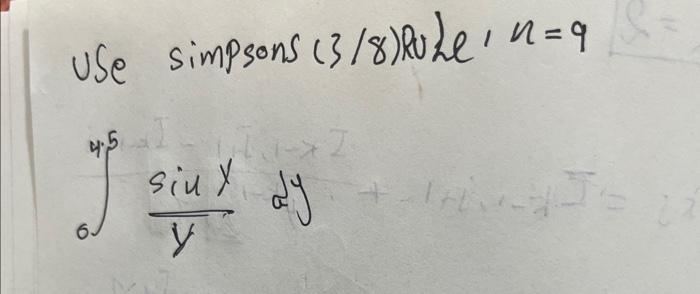 Use simpsons (3/8) Rule, n=9
4.5
∫ sin y / y dy
0